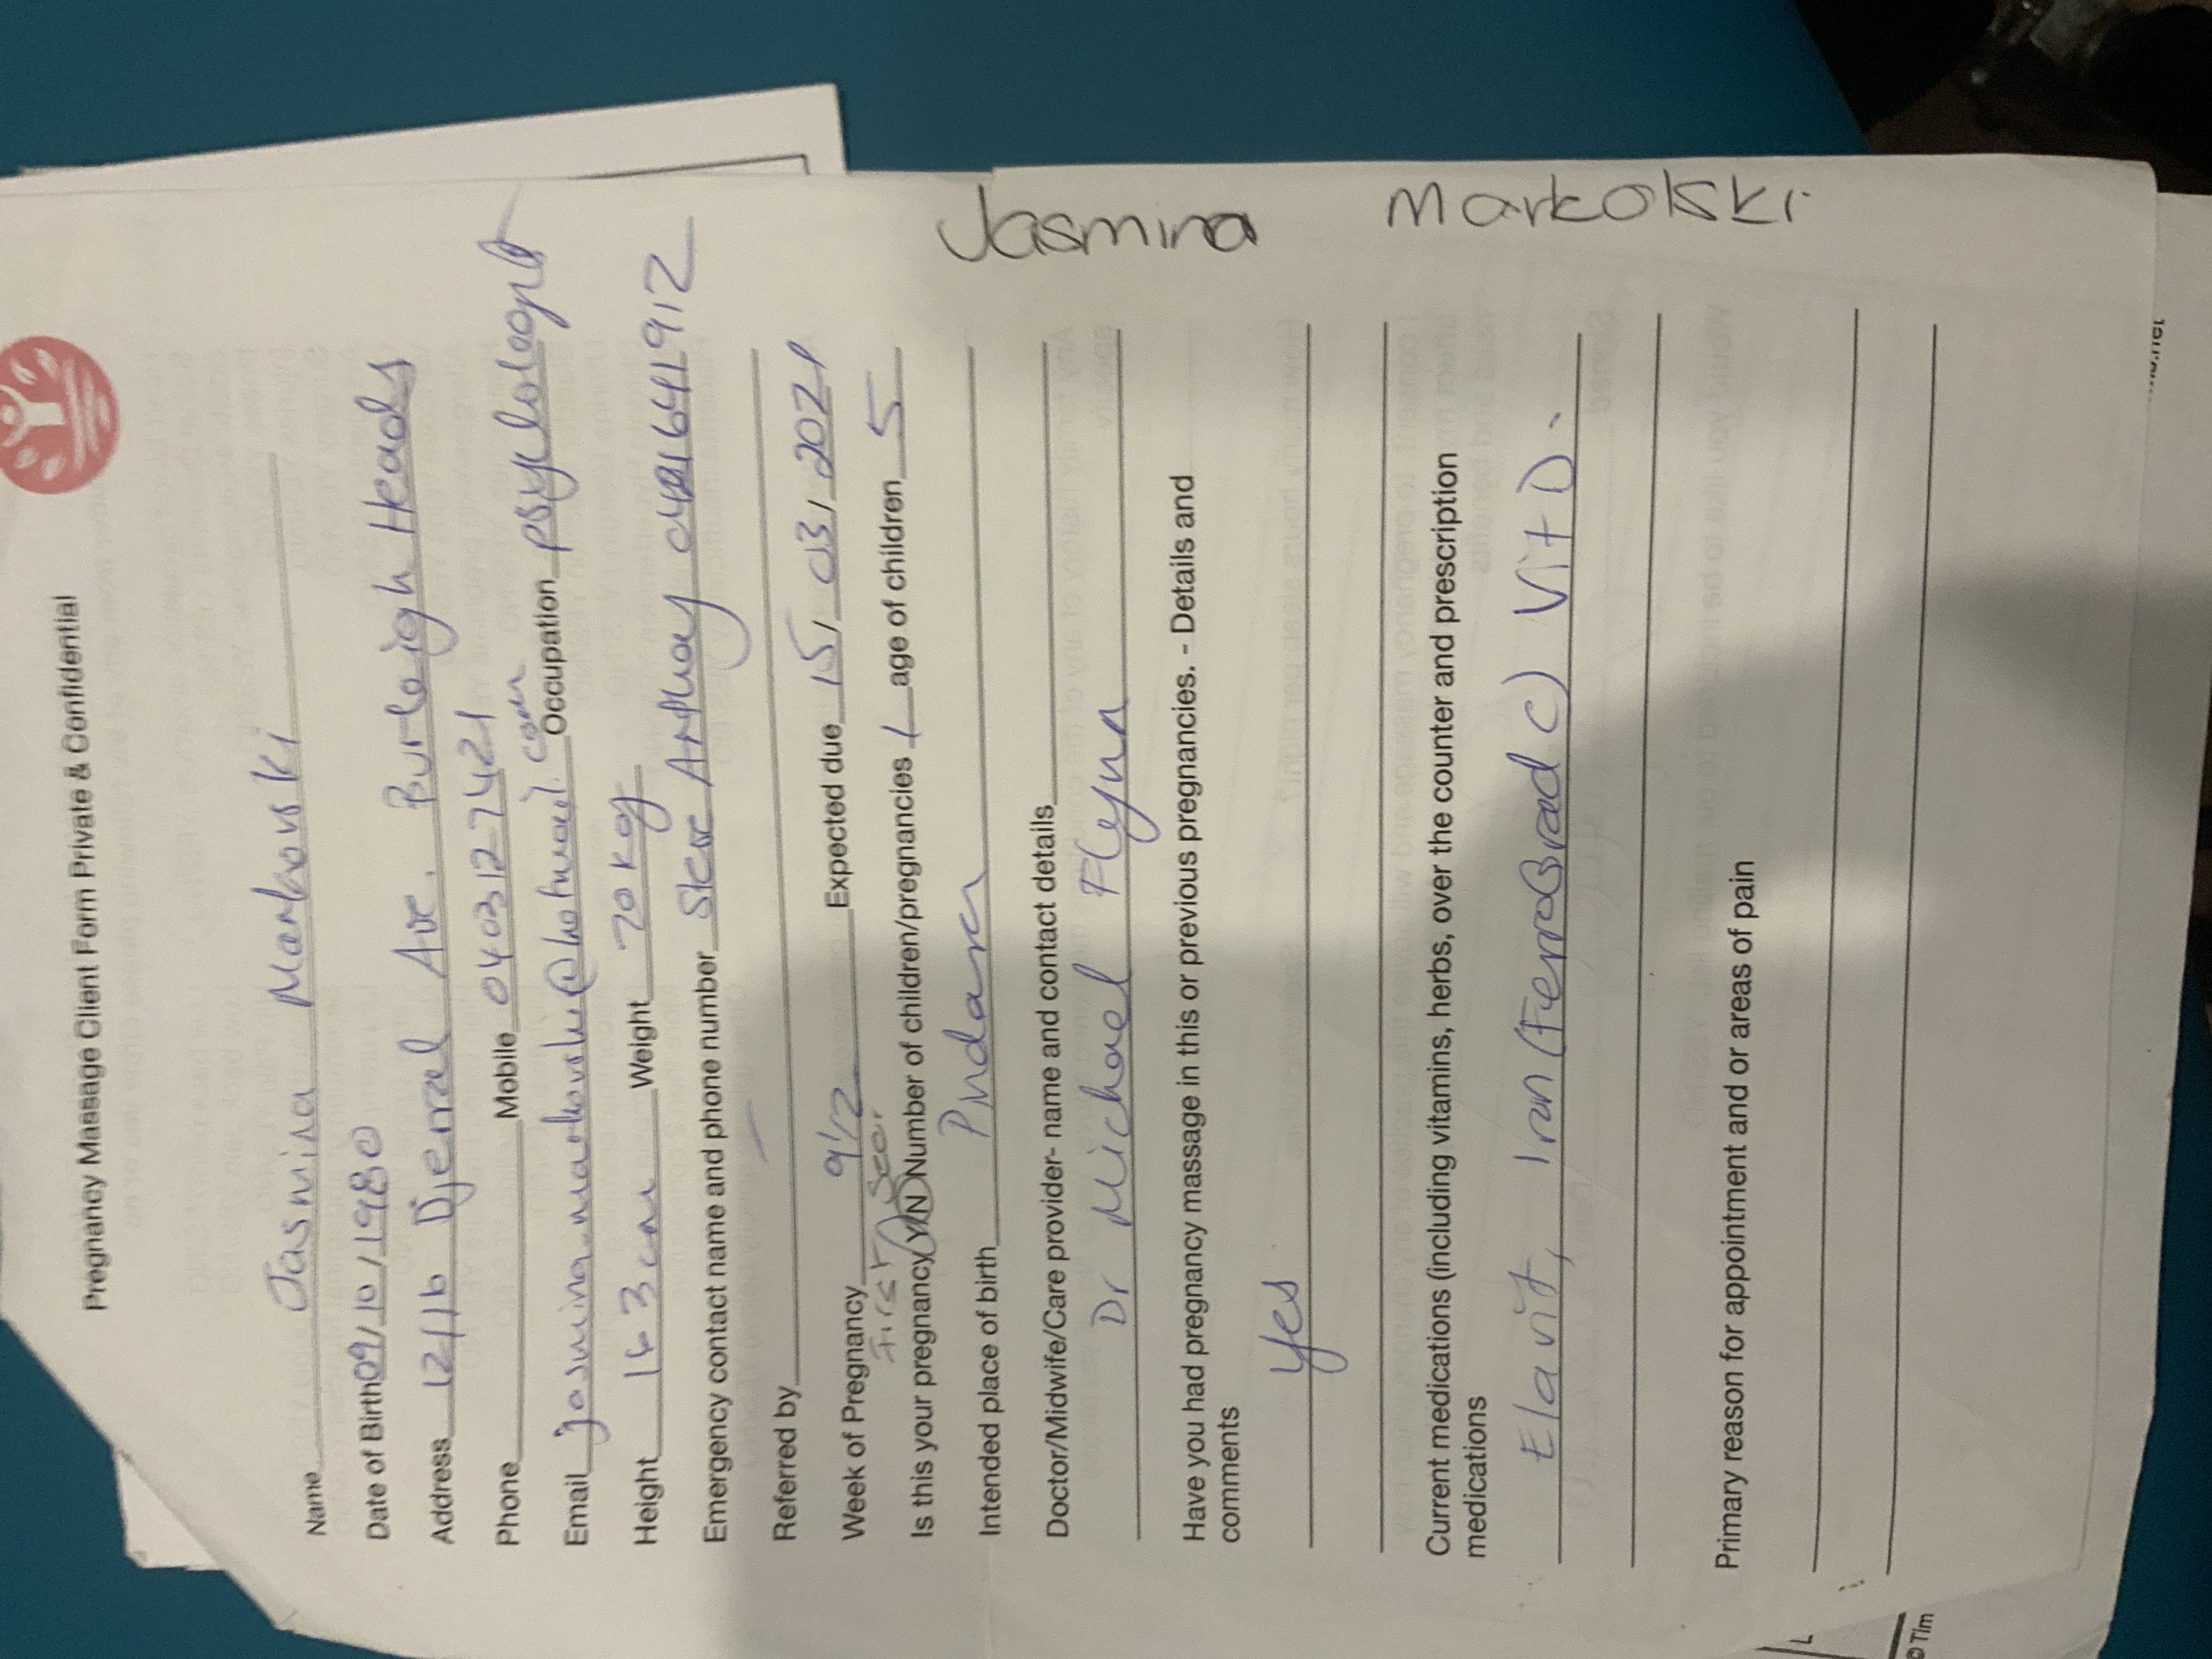 Pregnancy Massage Client Form Private & Confidential
Name Jasmina Markovski
Date of Birth 09/10/1980
Address 12/16 Djerral Ave. Burleigh Heads
Phone Mobile 0403127421
Email jasmina_markovski@hotmail.com Occupation psychologist
Height 163cm Weight 70kg
Emergency contact name and phone number Steve Anthony
Referred by
Week of Pregnancy 9 1/2 Expected due 15/ 03/ 2021
First Scan.
Is this your pregnancy Y/N Number of children/pregnancies 1 age of children 5
Intended place of birth Pindara
Doctor/Midwife/Care provider- name and contact details
Dr Michael Flynn
Have you had pregnancy massage in this or previous pregnancies. - Details and
comments
yes
Current medications (including vitamins, herbs, over the counter and prescription
medications
Elavit, Iron (FerroGrad C) Vit D.
Primary reason for appointment and or areas of pain
Jasmina Markolski
© Tim